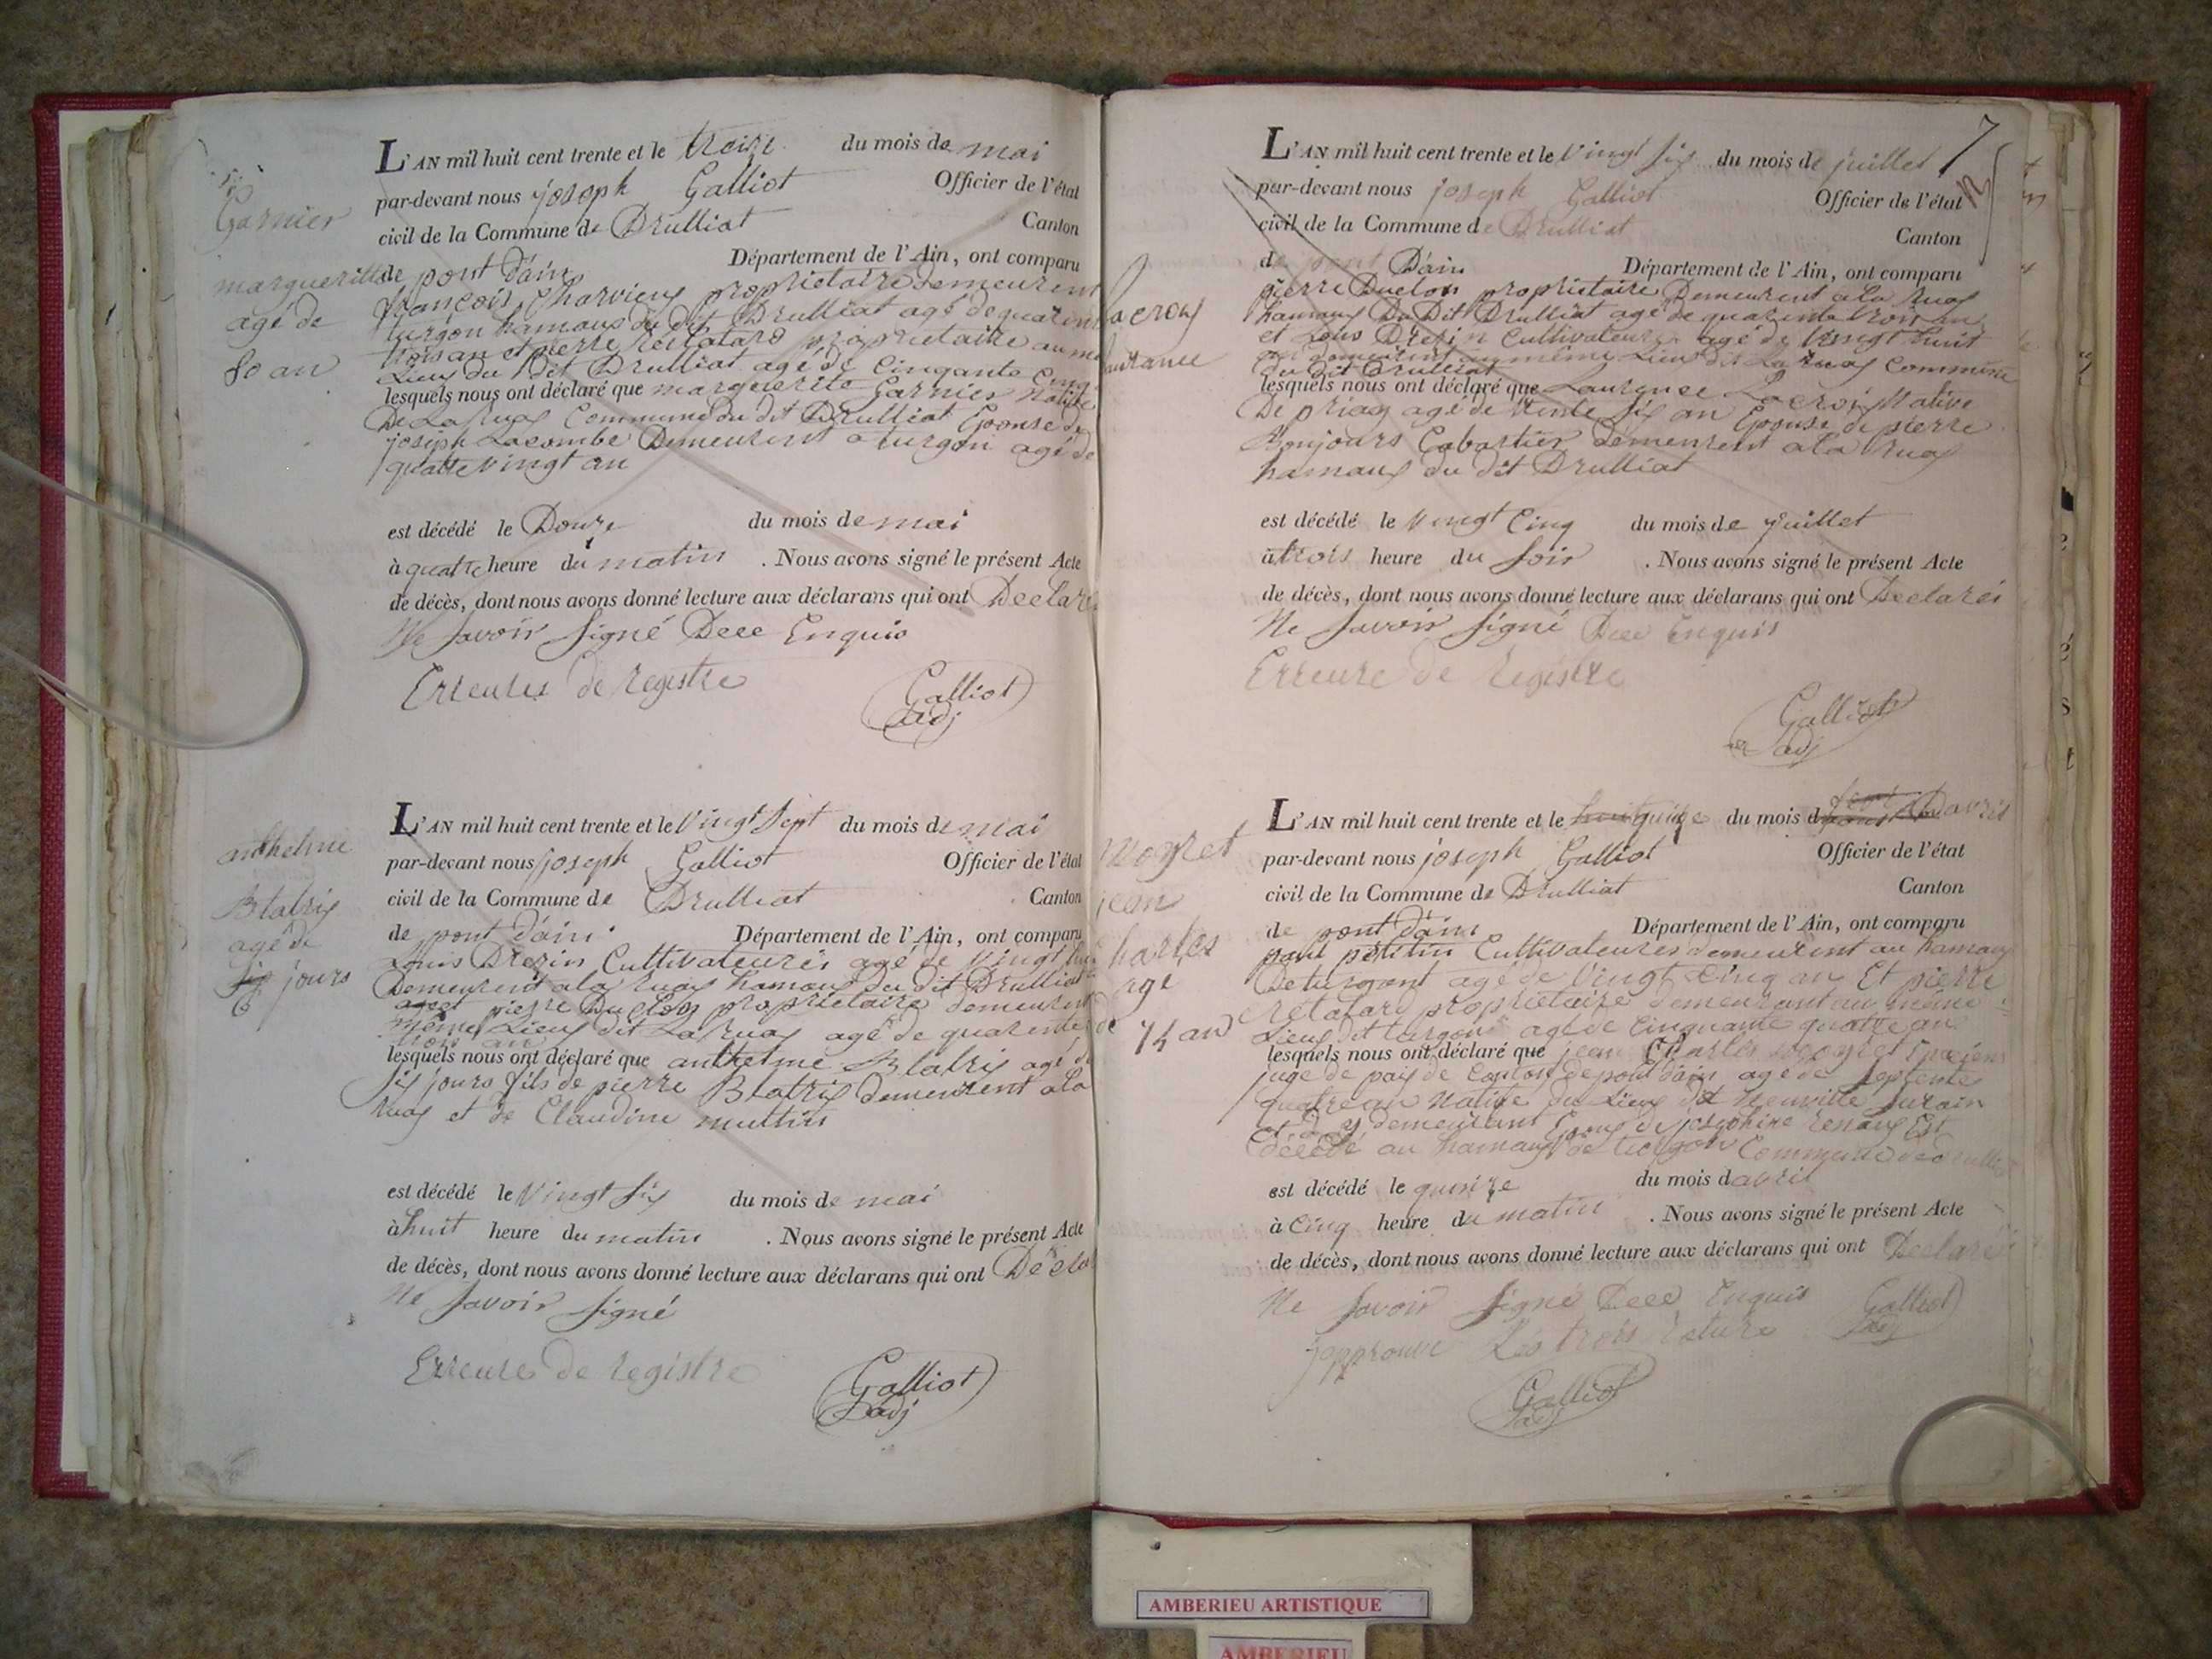 Garnier
margueritte
agé de
80 an
L'AN mil huit cent trente et le treize du mois de mai
par-devant nous joseph Galliot Officier de l'état
civil de la Commune de Drulliat Canton
de pont d'ain Département de l'Ain, ont comparu
françois Charvieux propriétaire demeurent
turgon hamaux du dit Drulliat agé de quarent
trois an et pierre retatard propriétaire au me
Lieux du Dit Drulliat agé de Cinqante Cinq
lesquels nous ont déclaré que marguerite Garnier Native
De La ruaz Commune du dit Drulliat Epouse de
joseph Lacombe Demeurent a turgon agé de
quatre vingt an
est décédé le Douze du mois de mai
à quatre heure du matin . Nous avons signé le présent Acte
de décès, dont nous avons donné lecture aux déclarans qui ont Declaré
Ne Savoir Signé Dece Enquis
Erreures de registre
Galliot
adj
anthelme
Blatrix
agé de
jours
6
L'AN mil huit cent trente et le Vingt Sept du mois de mai
par-devant nous joseph Galliot Officier de l'état
civil de la Commune de Drulliat Canton
de pont d'ain Département de l'Ain, ont comparu
Louis Drezin Cultivateures agé de Vingt hui
Demeurent a la ruaz hamaux du dit Drulliat
et pierre Duclos propriétaire demeurent
même Lieux dit La ruaz agé de quarente
trois an
lesquels nous ont déclaré que anthelme Blatrix agé de
Six jours fils de pierre Blatrix demeurent a la
ruaz et de Claudine muthin
est décédé le Vingt Six du mois de mai
à huit heure du matin . Nous avons signé le présent Acte
de décès, dont nous avons donné lecture aux déclarans qui ont Décla
Ne Savoir Signé
Erreures de registre
Galliot
adj
7
Lacroix
laurance
L'AN mil huit cent trente et le Vingt Six du mois de juillet
par-devant nous joseph Galliot Officier de l'état
civil de la Commune de Drulliat Canton
de pont Dain Département de l'Ain, ont comparu
pierre Duclos propriétaire Demeurent a la ruaz
hamaux Du Dit Drulliat agé de quarente trois an
et Louis Drezin Cultivateures agé de Vingt huit
an demeurent au même Lieux dit La ruaz Commune
du dit Drulliat
lesquels nous ont déclaré que Laurence Lacroix Native
De priay agé de trente Six an Epouse de pierre
Bonjours Cabartier demeurent a la ruaz
hamaux du dit Drulliat
est décédé le Vingt Cinq du mois de juillet
à trois heure du Soir . Nous avons signé le présent Acte
de décès, dont nous avons donné lecture aux déclarans qui ont Declarés
Ne Savoir Signé Dece Enquis
Erreure de registre
Galliot
adj
moyret
jean
harles
age
de 74 an
L'AN mil huit cent trente et le quize du mois davril
par-devant nous joseph Galliot Officier de l'état
civil de la Commune de Drulliat Canton
de pont dain Département de l'Ain, ont comparu
paul petitin Cultivateures demeurent au hamaux
De turgont agé de Vingt Cinq an Et pierre
retatard propriétaire demeurant au même
Lieux dit turgon agé de Cinquante quatre an
lesquels nous ont déclaré que jean Charles moyret
juge de paix de Canton de pont dain agé de Septente
quatre an Native du Lieux dit Neuville Sur ain
et demeurant Epoux de josephine renaux Est
décédé au hamaux de turgon Commune de
est décédé le quinze du mois davril
à Cinq heure du matin . Nous avons signé le présent Acte
de décès, dont nous avons donné lecture aux déclarans qui ont Declaré
Ne Savoir Signe Dece Enquis Galliot
adj
japprouve Les trois rature
Galliot
adj
AMBERIEU ARTISTIQUE
AMBERIEU